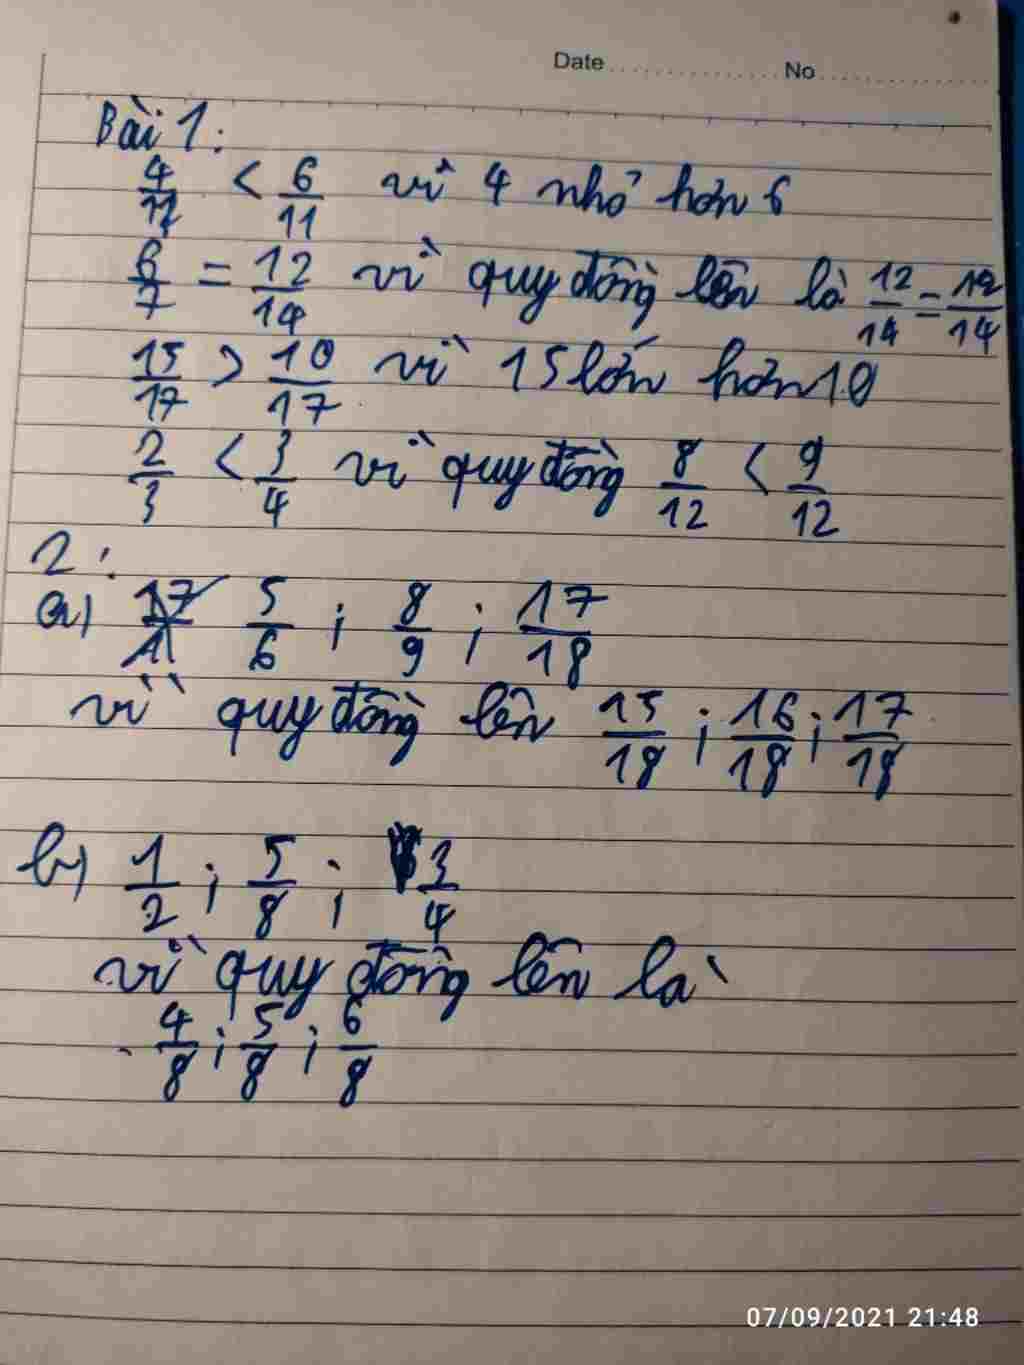 Date ............... No ...............
Bài 1:
4/11 < 6/11 vì 4 nhỏ hơn 6
6/7 = 12/14 vì quy đồng lên là 12/14 = 12/14
15/17 > 10/17 vì 15 lớn hơn 10
2/3 < 3/4 vì quy đồng 8/12 < 9/12
2:
a) 5/6 ; 8/9 ; 17/18
vì quy đồng lên 15/18 ; 16/18 ; 17/18
b) 1/2 ; 5/8 ; 3/4
vì quy đồng lên là
4/8 ; 5/8 ; 6/8
07/09/2021 21:48